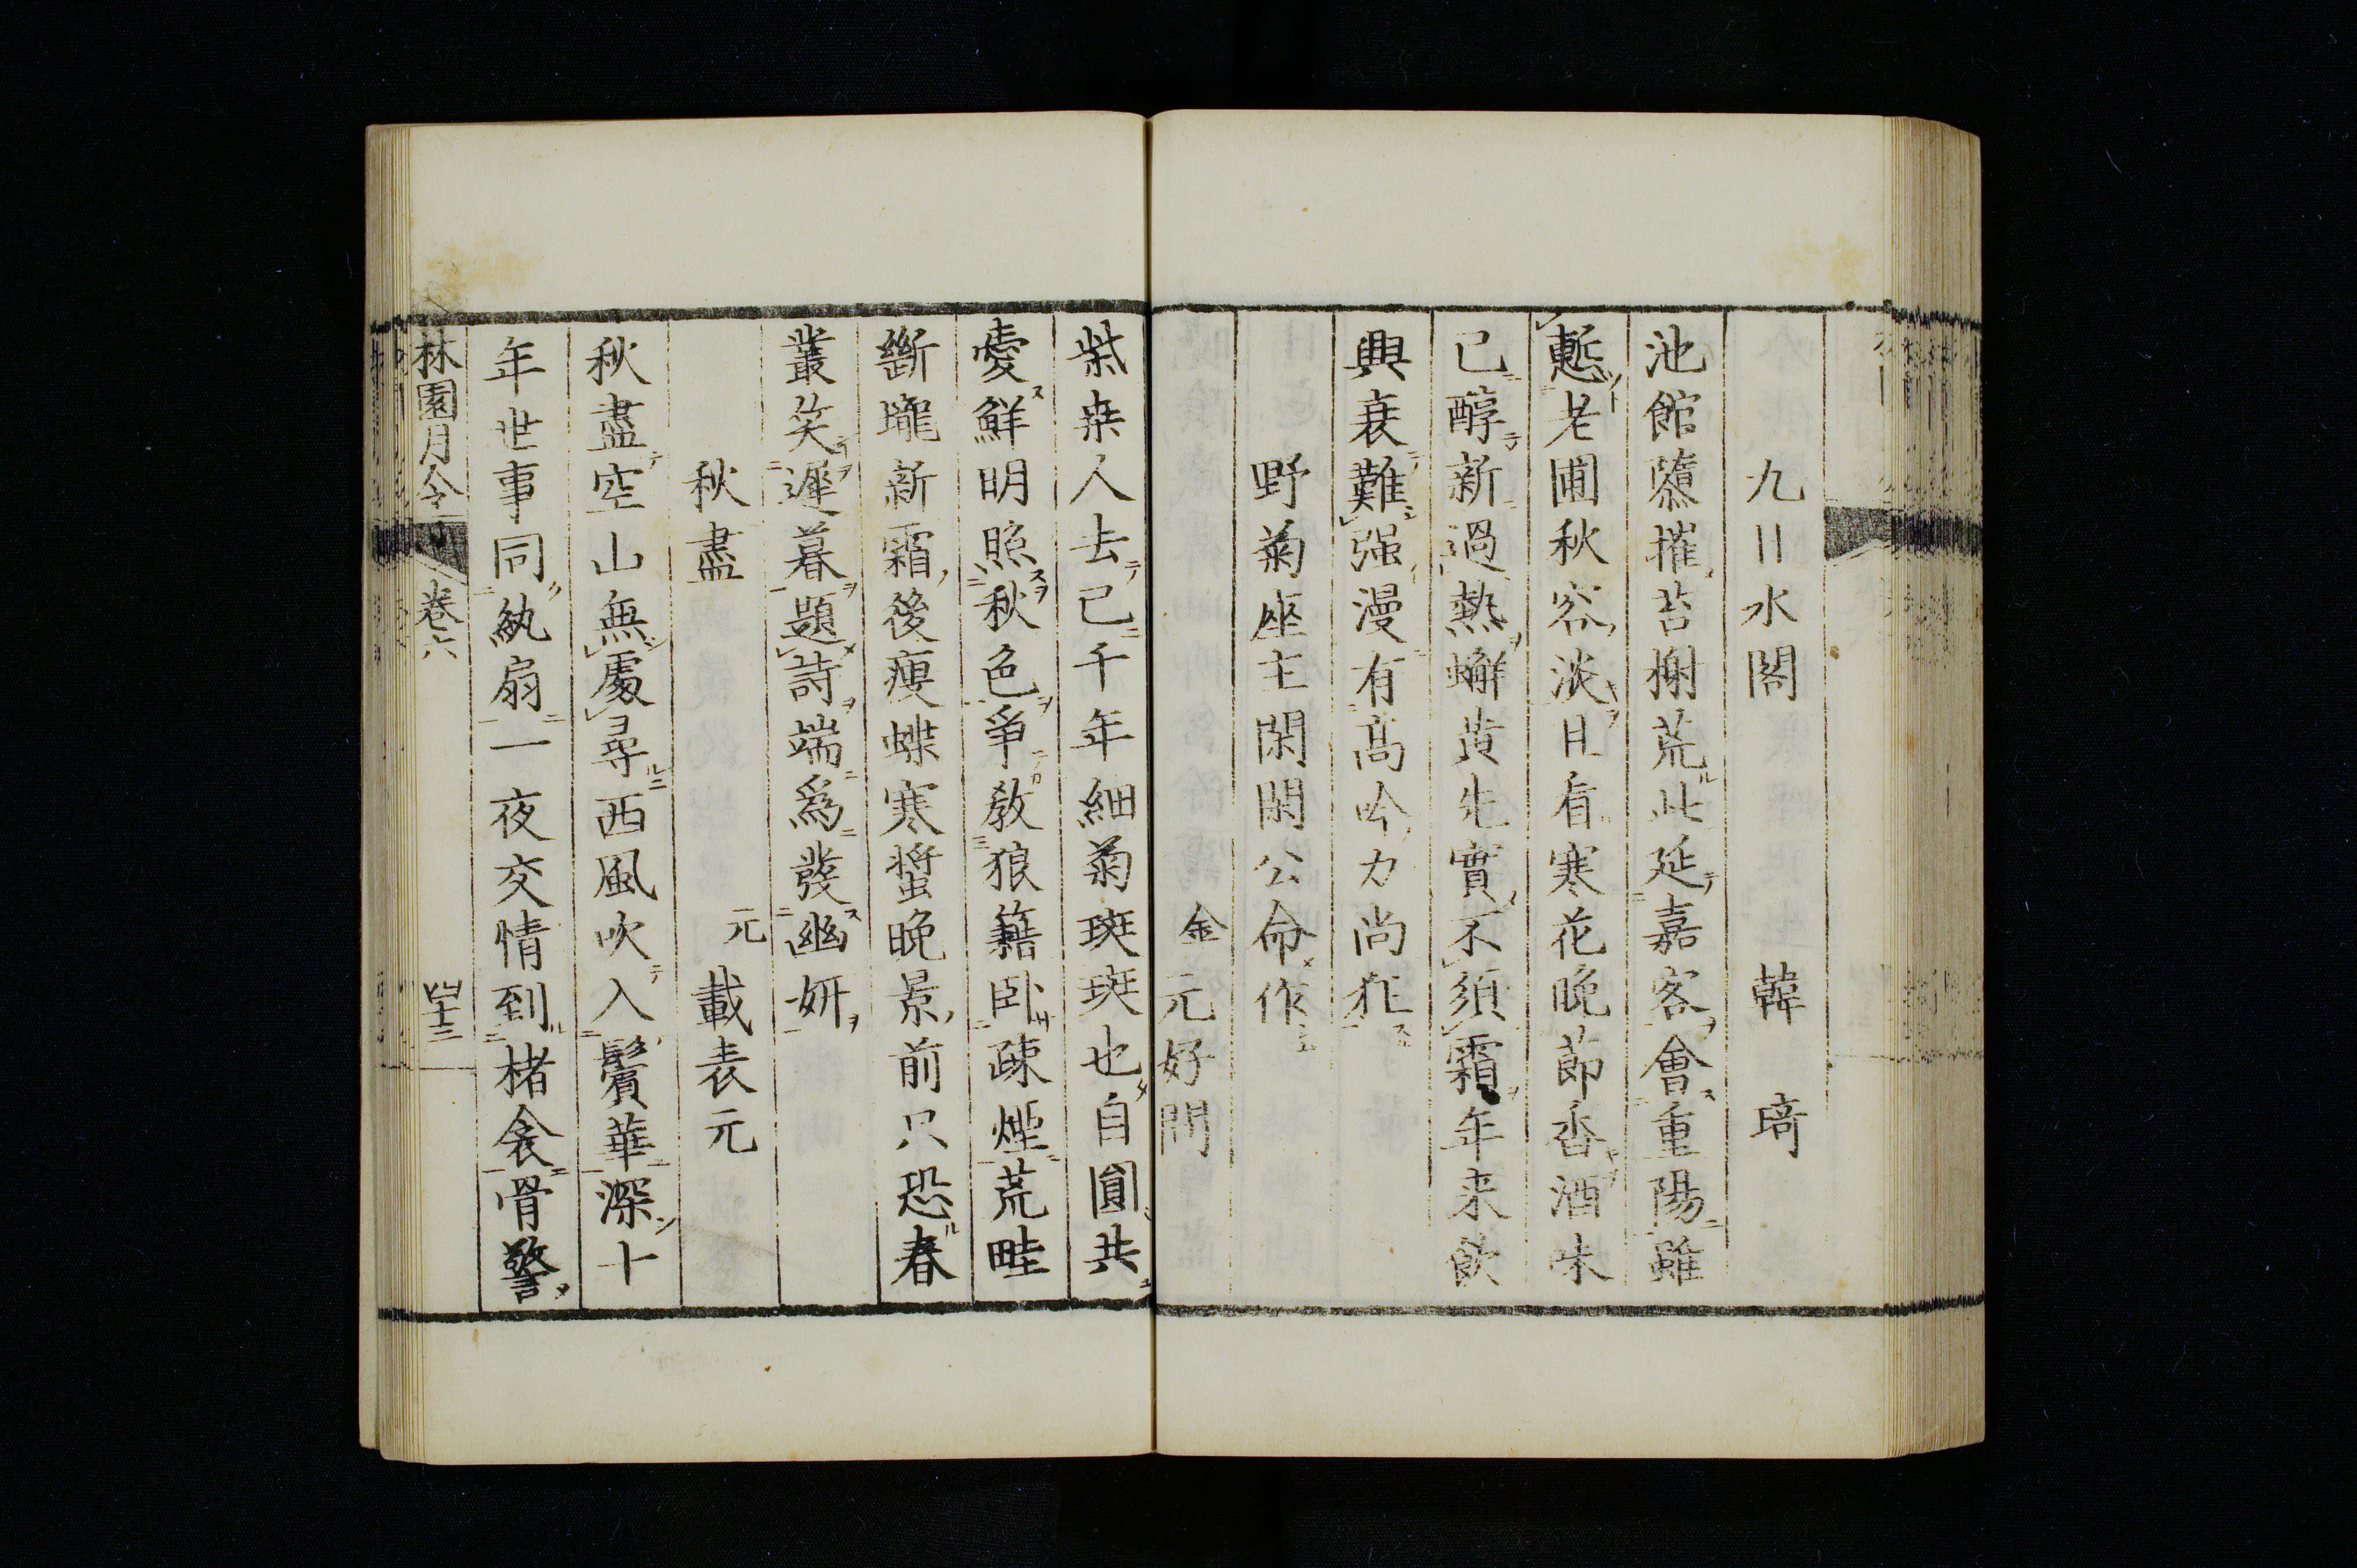 九日水閣　韓琦
池館隳摧苔榭荒此延嘉客會重陽雖
慙老圃秋容淡且看寒花晚節香酒味
已醇新過熱蠏黄先實不須霜年来飲
興衰難强漫有高吟力尚狂
野菊座主閑閑公命作
金元好問
柴桒人去已千年細菊斑斑也自圓共
愛鮮明照秋色爭教狼籍卧疎煙荒畦
斷壠新霜後瘦蝶寒螀晚景前只恐春
叢笑遲暮題詩端爲發幽妍
秋盡　元載表元
秋盡空山無處尋西風吹入鬢華深十
年世事同紈扇一夜交情到楮衾骨警
林園月令　卷六　四十三